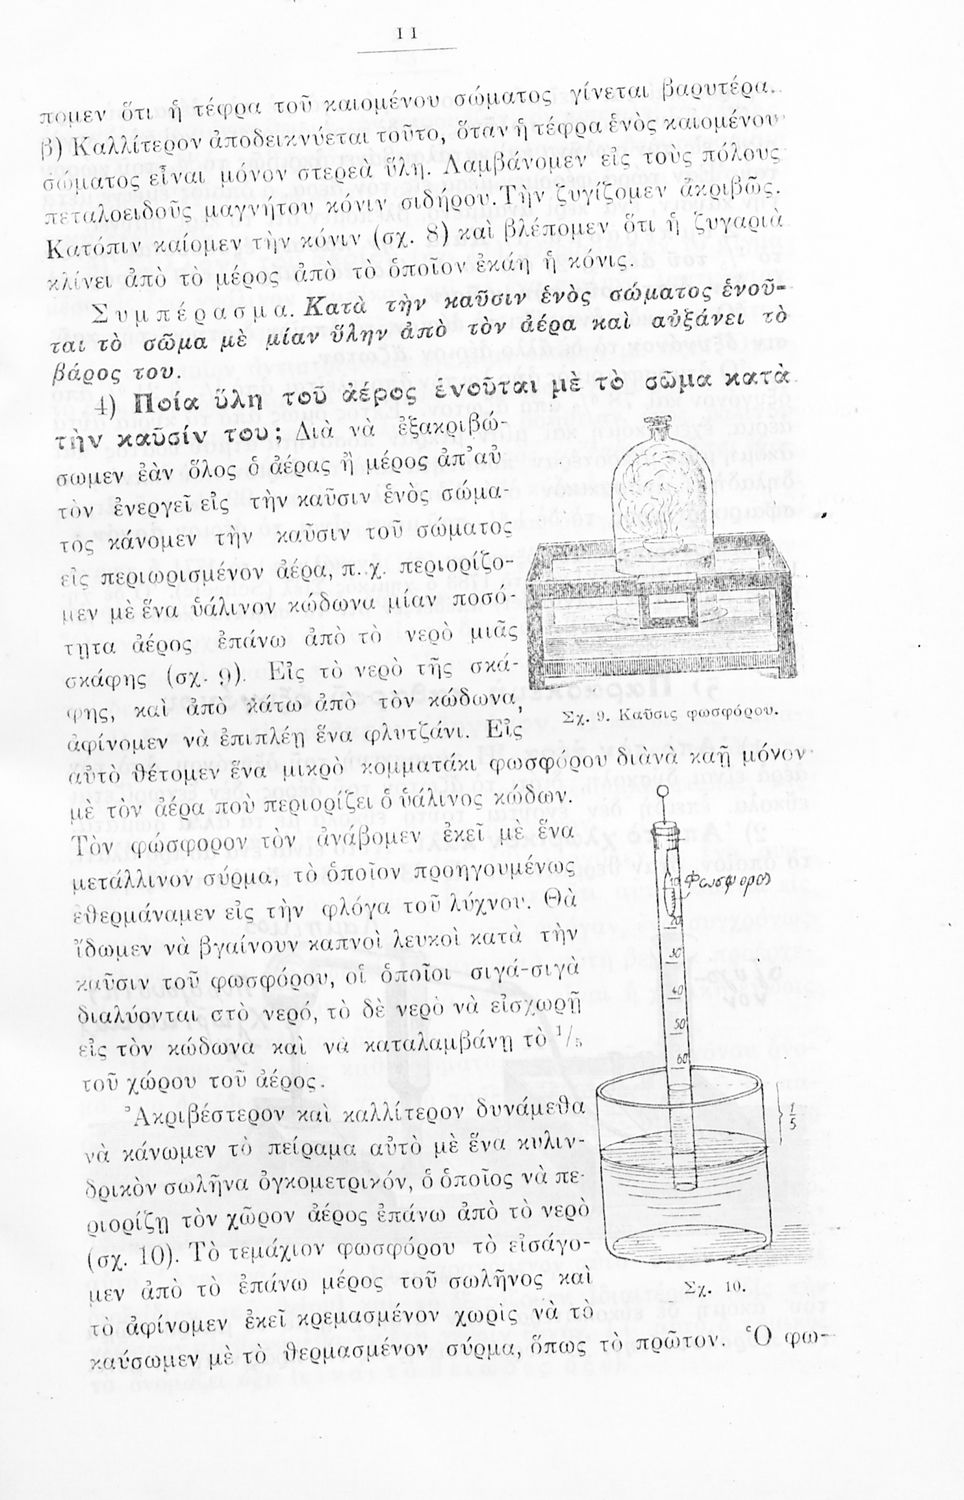 11
πομεν ὅτι ἡ τέφρα τοῦ καιομένου σώματος γίνεται βαρυτέρα.
β) Καλλίτερον ἀποδεικνύεται τοῦτο, ὅταν ἡ τέφρα ἑνὸς καιομένου
σώματος εἶναι μόνον στερεὰ ὕλη. Λαμβάνομεν εἰς τοὺς πόλους
πεταλοειδοῦς μαγνήτου κόνιν σιδήρου. Τὴν ζυγίζομεν ἀκριβῶς.
Κατόπιν καίομεν τὴν κόνιν (σχ. 8) καὶ βλέπομεν ὅτι ἡ ζυγαριὰ
κλίνει ἀπὸ τὸ μέρος ἀπὸ τὸ ὁποῖον ἐκάη ἡ κόνις.
Συμπέρασμα. Κατὰ τὴν καῦσιν ἑνὸς σώματος ἑνοῦ-
ται τὸ σῶμα μὲ μίαν ὕλην ἀπὸ τὸν ἀέρα καὶ αὐξάνει τὸ
βάρος του.
4) Ποία ὕλη τοῦ ἀέρος ἑνοῦται μὲ τὸ σῶμα κατὰ
τὴν καῦσίν του; Διὰ νὰ ἐξακριβώ-
σωμεν ἐὰν ὅλος ὁ ἀέρας ἢ μέρος ἀπ' αὐ
τὸν ἐνεργεῖ εἰς τὴν καῦσιν ἑνὸς σώμα-
τος κάνομεν τὴν καῦσιν τοῦ σώματος
εἰς περιωρισμένον ἀέρα, π. χ. περιορίζο-
μεν μὲ ἕνα ὑάλινον κώδωνα μίαν ποσό-
τητα ἀέρος ἐπάνω ἀπὸ τὸ νερὸ μιᾶς
σκάφης (σχ. 9). Εἰς τὸ νερὸ τῆς σκά-
φης, καὶ ἀπὸ κάτω ἀπὸ τὸν κώδωνα,
ἀφίνομεν νὰ ἐπιπλέῃ ἕνα φλυτζάνι. Εἰς
Σχ. 9. Καῦσις φωσφόρου.
αὐτὸ θέτομεν ἕνα μικρὸ κομματάκι φωσφόρου διὰ νὰ καῇ μόνον
μὲ τὸν ἀέρα ποὺ περιορίζει ὁ ὑάλινος κώδων.
Τὸν φώσφορον τὸν ἀνάβομεν ἐκεῖ μὲ ἕνα
μετάλλινον σύρμα, τὸ ὁποῖον προηγουμένως
ἐθερμάναμεν εἰς τὴν φλόγα τοῦ λύχνου. Θὰ
ἴδωμεν νὰ βγαίνουν καπνοὶ λευκοὶ κατὰ τὴν
καῦσιν τοῦ φωσφόρου, οἱ ὁποῖοι σιγά-σιγὰ
διαλύονται στὸ νερό, τὸ δὲ νερὸ νὰ εἰσχωρῇ
εἰς τὸν κώδωνα καὶ νὰ καταλαμβάνῃ τὸ 1/5
τοῦ χώρου τοῦ ἀέρος.
Φωσφόρος
20
30
40
50
60
1/5
Ἀκριβέστερον καὶ καλλίτερον δυνάμεθα
νὰ κάνωμεν τὸ πείραμα αὐτὸ μὲ ἕνα κυλιν-
δρικὸν σωλῆνα ὀγκομετρικόν, ὁ ὁποῖος νὰ πε-
ριορίζῃ τὸν χῶρον ἀέρος ἐπάνω ἀπὸ τὸ νερὸ
(σχ. 10). Τὸ τεμάχιον φωσφόρου τὸ εἰσάγο-
μεν ἀπὸ τὸ ἐπάνω μέρος τοῦ σωλῆνος καὶ
Σχ. 10.
τὸ ἀφίνομεν ἐκεῖ κρεμασμένον χωρὶς νὰ τὸ
καύσωμεν μὲ τὸ θερμασμένον σύρμα, ὅπως τὸ πρῶτον. Ὁ φω-